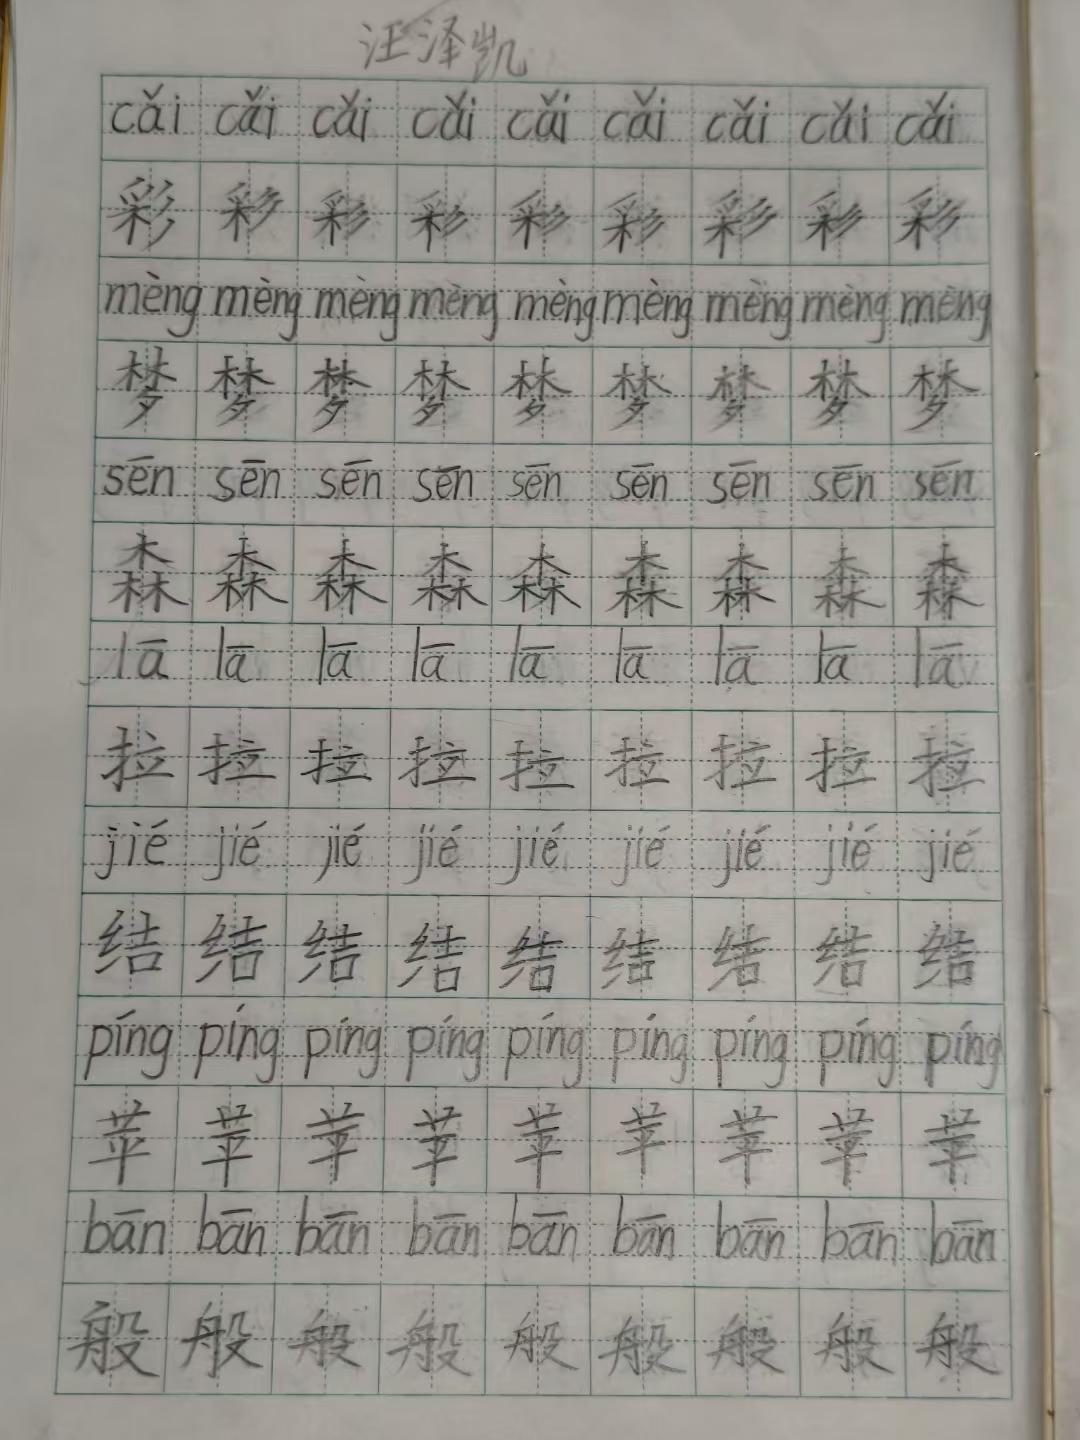 汪泽凯
cǎi cǎi cǎi cǎi cǎi cǎi cǎi cǎi cǎi
彩 彩 彩 彩 彩 彩 彩 彩 彩
mèng mèng mèng mèng mèng mèng mèng mèng mèng
梦 梦 梦 梦 梦 梦 梦 梦 梦
sēn sēn sēn sēn sēn sēn sēn sēn sēn
森 森 森 森 森 森 森 森 森
lā lā lā lā lā lā lā lā lā
拉 拉 拉 拉 拉 拉 拉 拉 拉
jié jié jié jié jié jié jié jié jié
结 结 结 结 结 结 结 结 结
píng píng píng píng píng píng píng píng píng
苹 苹 苹 苹 苹 苹 苹 苹 苹
bān bān bān bān bān bān bān bān bān
般 般 般 般 般 般 般 般 般